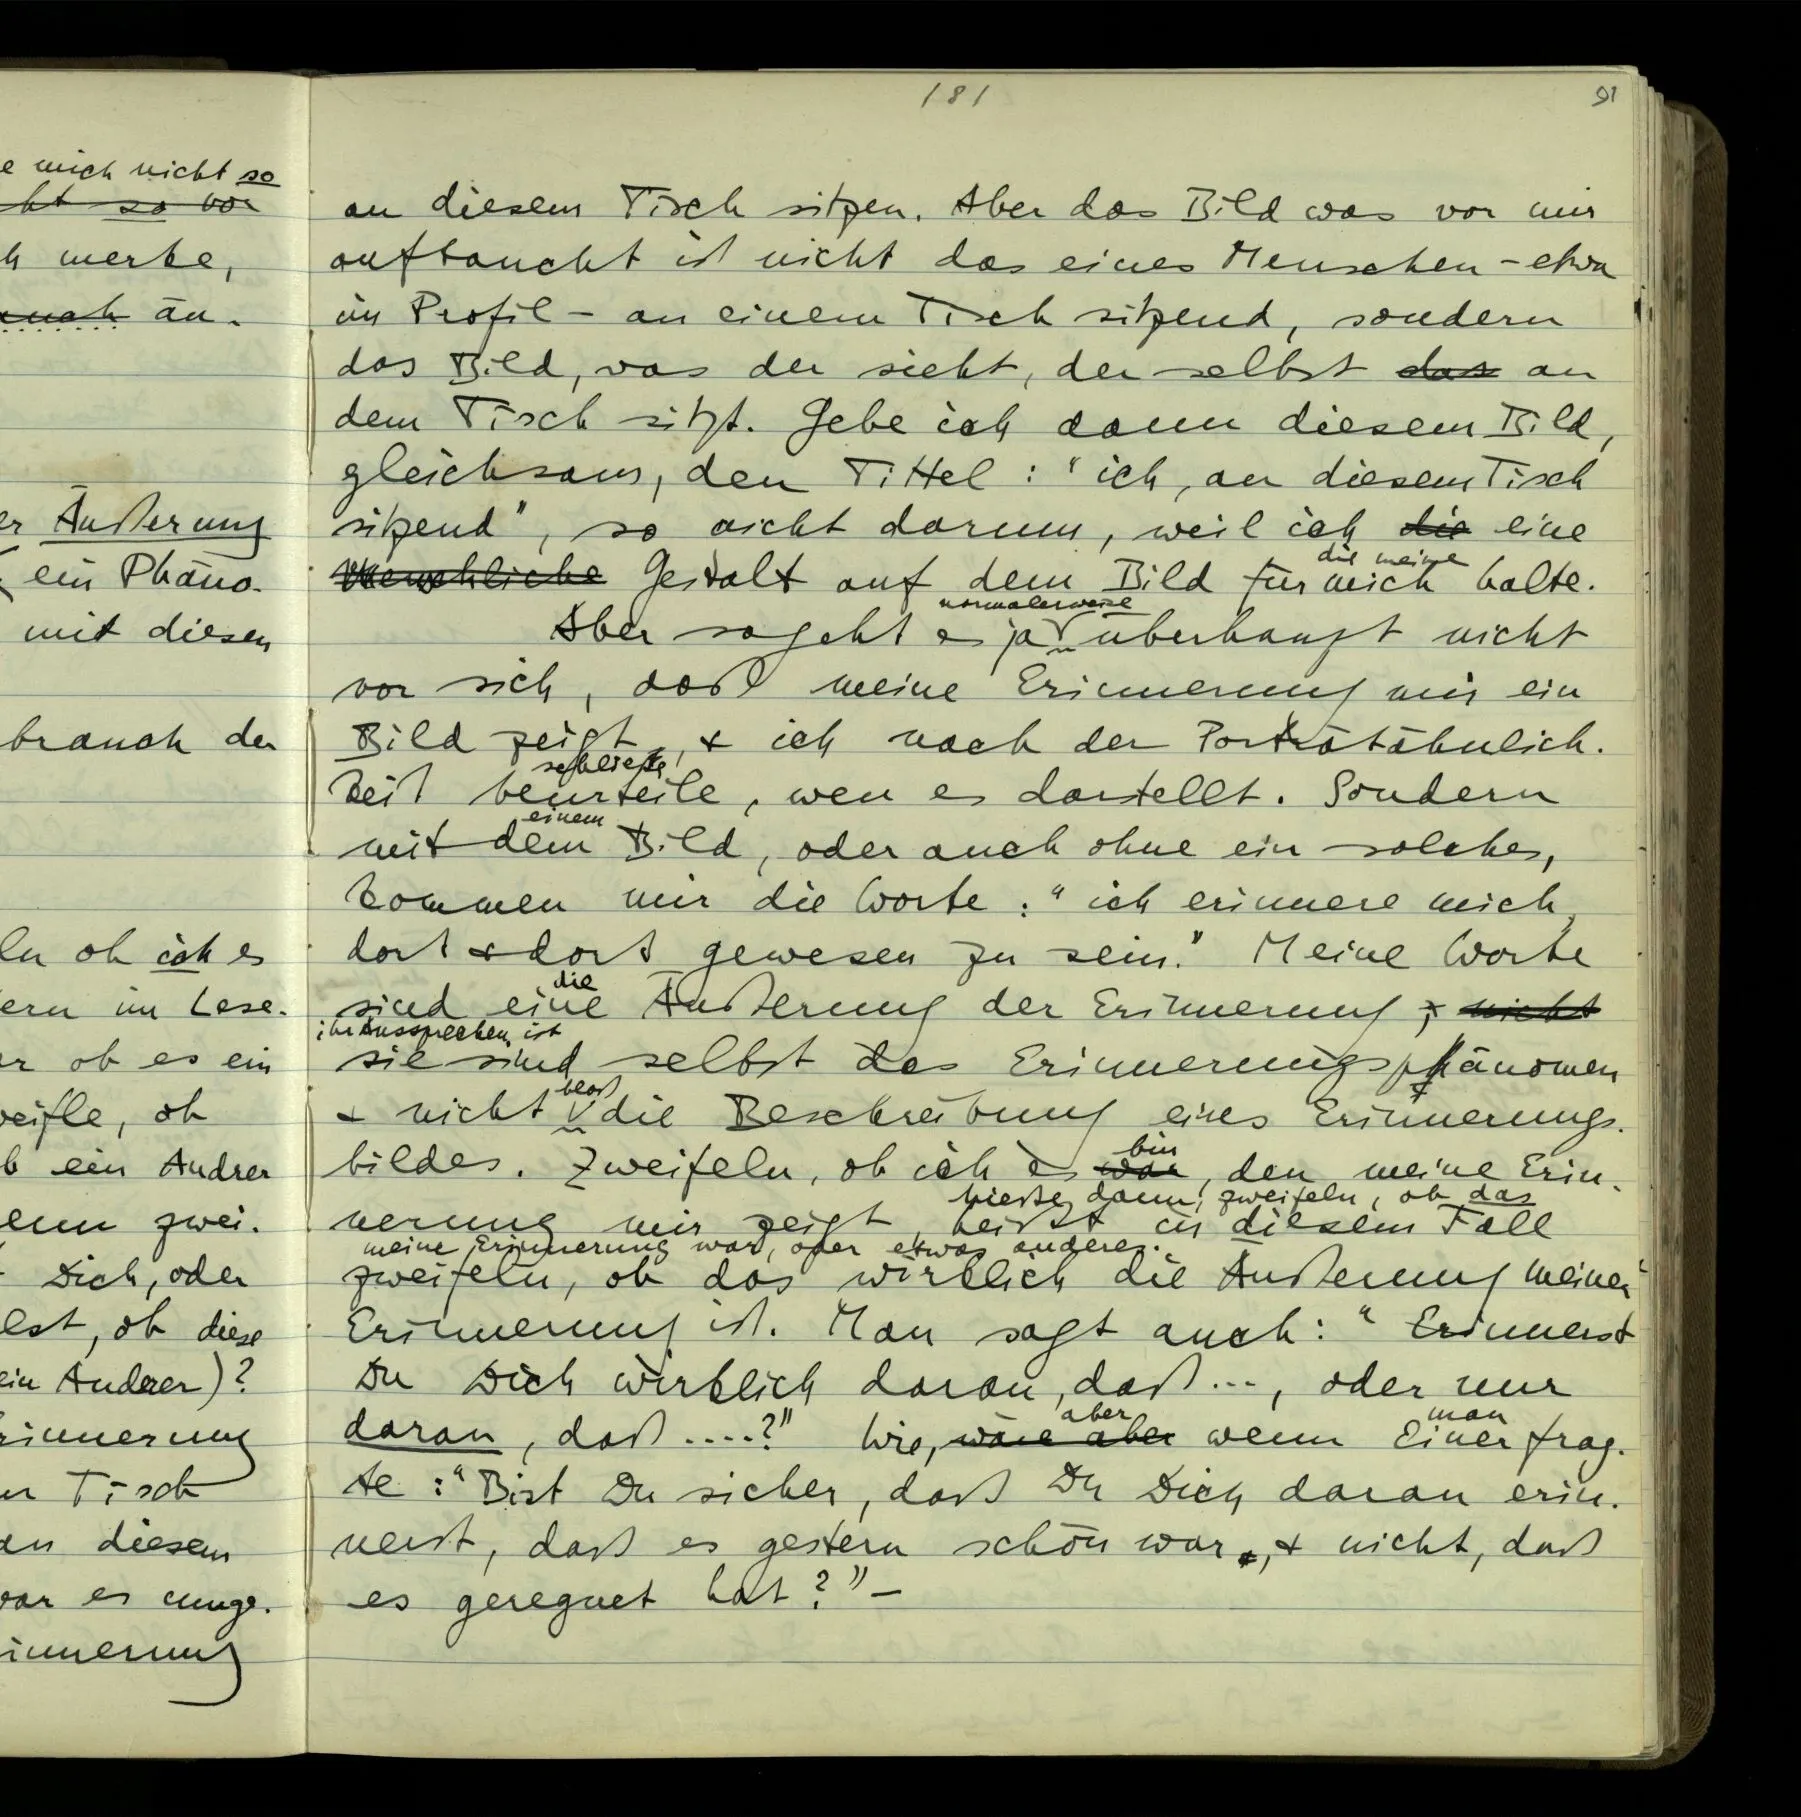 181
91
e mich nicht so
ht so vor
h merke,
auch än-
er Äußerung
ein Phäno-
mit diesen
brauch der
ln ob ich es
ern im Lese-
ar ob es ein
weifle, ob
b ein Andrer
enn zwei-
Dich, oder
lst, ob diese
ein Anderer)?
rinnerung
Tisch
an diesem
war es umge-
innerung
an diesem Tisch sitzen. Aber das Bild was vor mir
auftaucht ist nicht das eines Menschen – etwa
im Profil – an einem Tisch sitzend, sondern
das Bild, was der sieht, der selbst das an
dem Tisch sitzt. Gebe ich dann diesem Bild,
gleichsam, den Tittel: "ich, an diesem Tisch
sitzend", so nicht darum, weil ich die eine
die meine
Menschliche Gestalt auf dem Bild für mich halte.
normalerweise
Aber so geht es ja überhaupt nicht
vor sich, daß meine Erinnerung mir ein
Bild zeigt, & ich nach der Porträtähnlich-
schließe
keit beurteile, wen es darstellt. Sondern
einem
mit dem Bild, oder auch ohne ein solches,
kommen mir die Worte: "ich erinnere mich,
dort & dort gewesen zu sein." Meine Worte
die
sind eine Äußerung der Erinnerung; nicht
ihr Aussprechen ist
sie sind selbst das Erinnerungsphänomen
bloß
& nicht die Beschreibung eines Erinnerungs-
bin
bildes. Zweifeln, ob ich es war, den meine Erin-
hieße dann: zweifeln, ob das
nerung mir zeigt heißt in diesem Fall
meine Erinnerung war, oder etwas anderes.
zweifeln, ob das wirklich die Äußerung meiner
Erinnerung ist. Man sagt auch: "Erinnerst
Du Dich wirklich daran, daß ..., oder nur
aber man
daran, daß ....?" Wie, wäre aber wenn Einer frag-
te: "Bist Du sicher, daß Du Dich daran erin-
nerst, daß es gestern schön war, & nicht, daß
es geregnet hat?" –